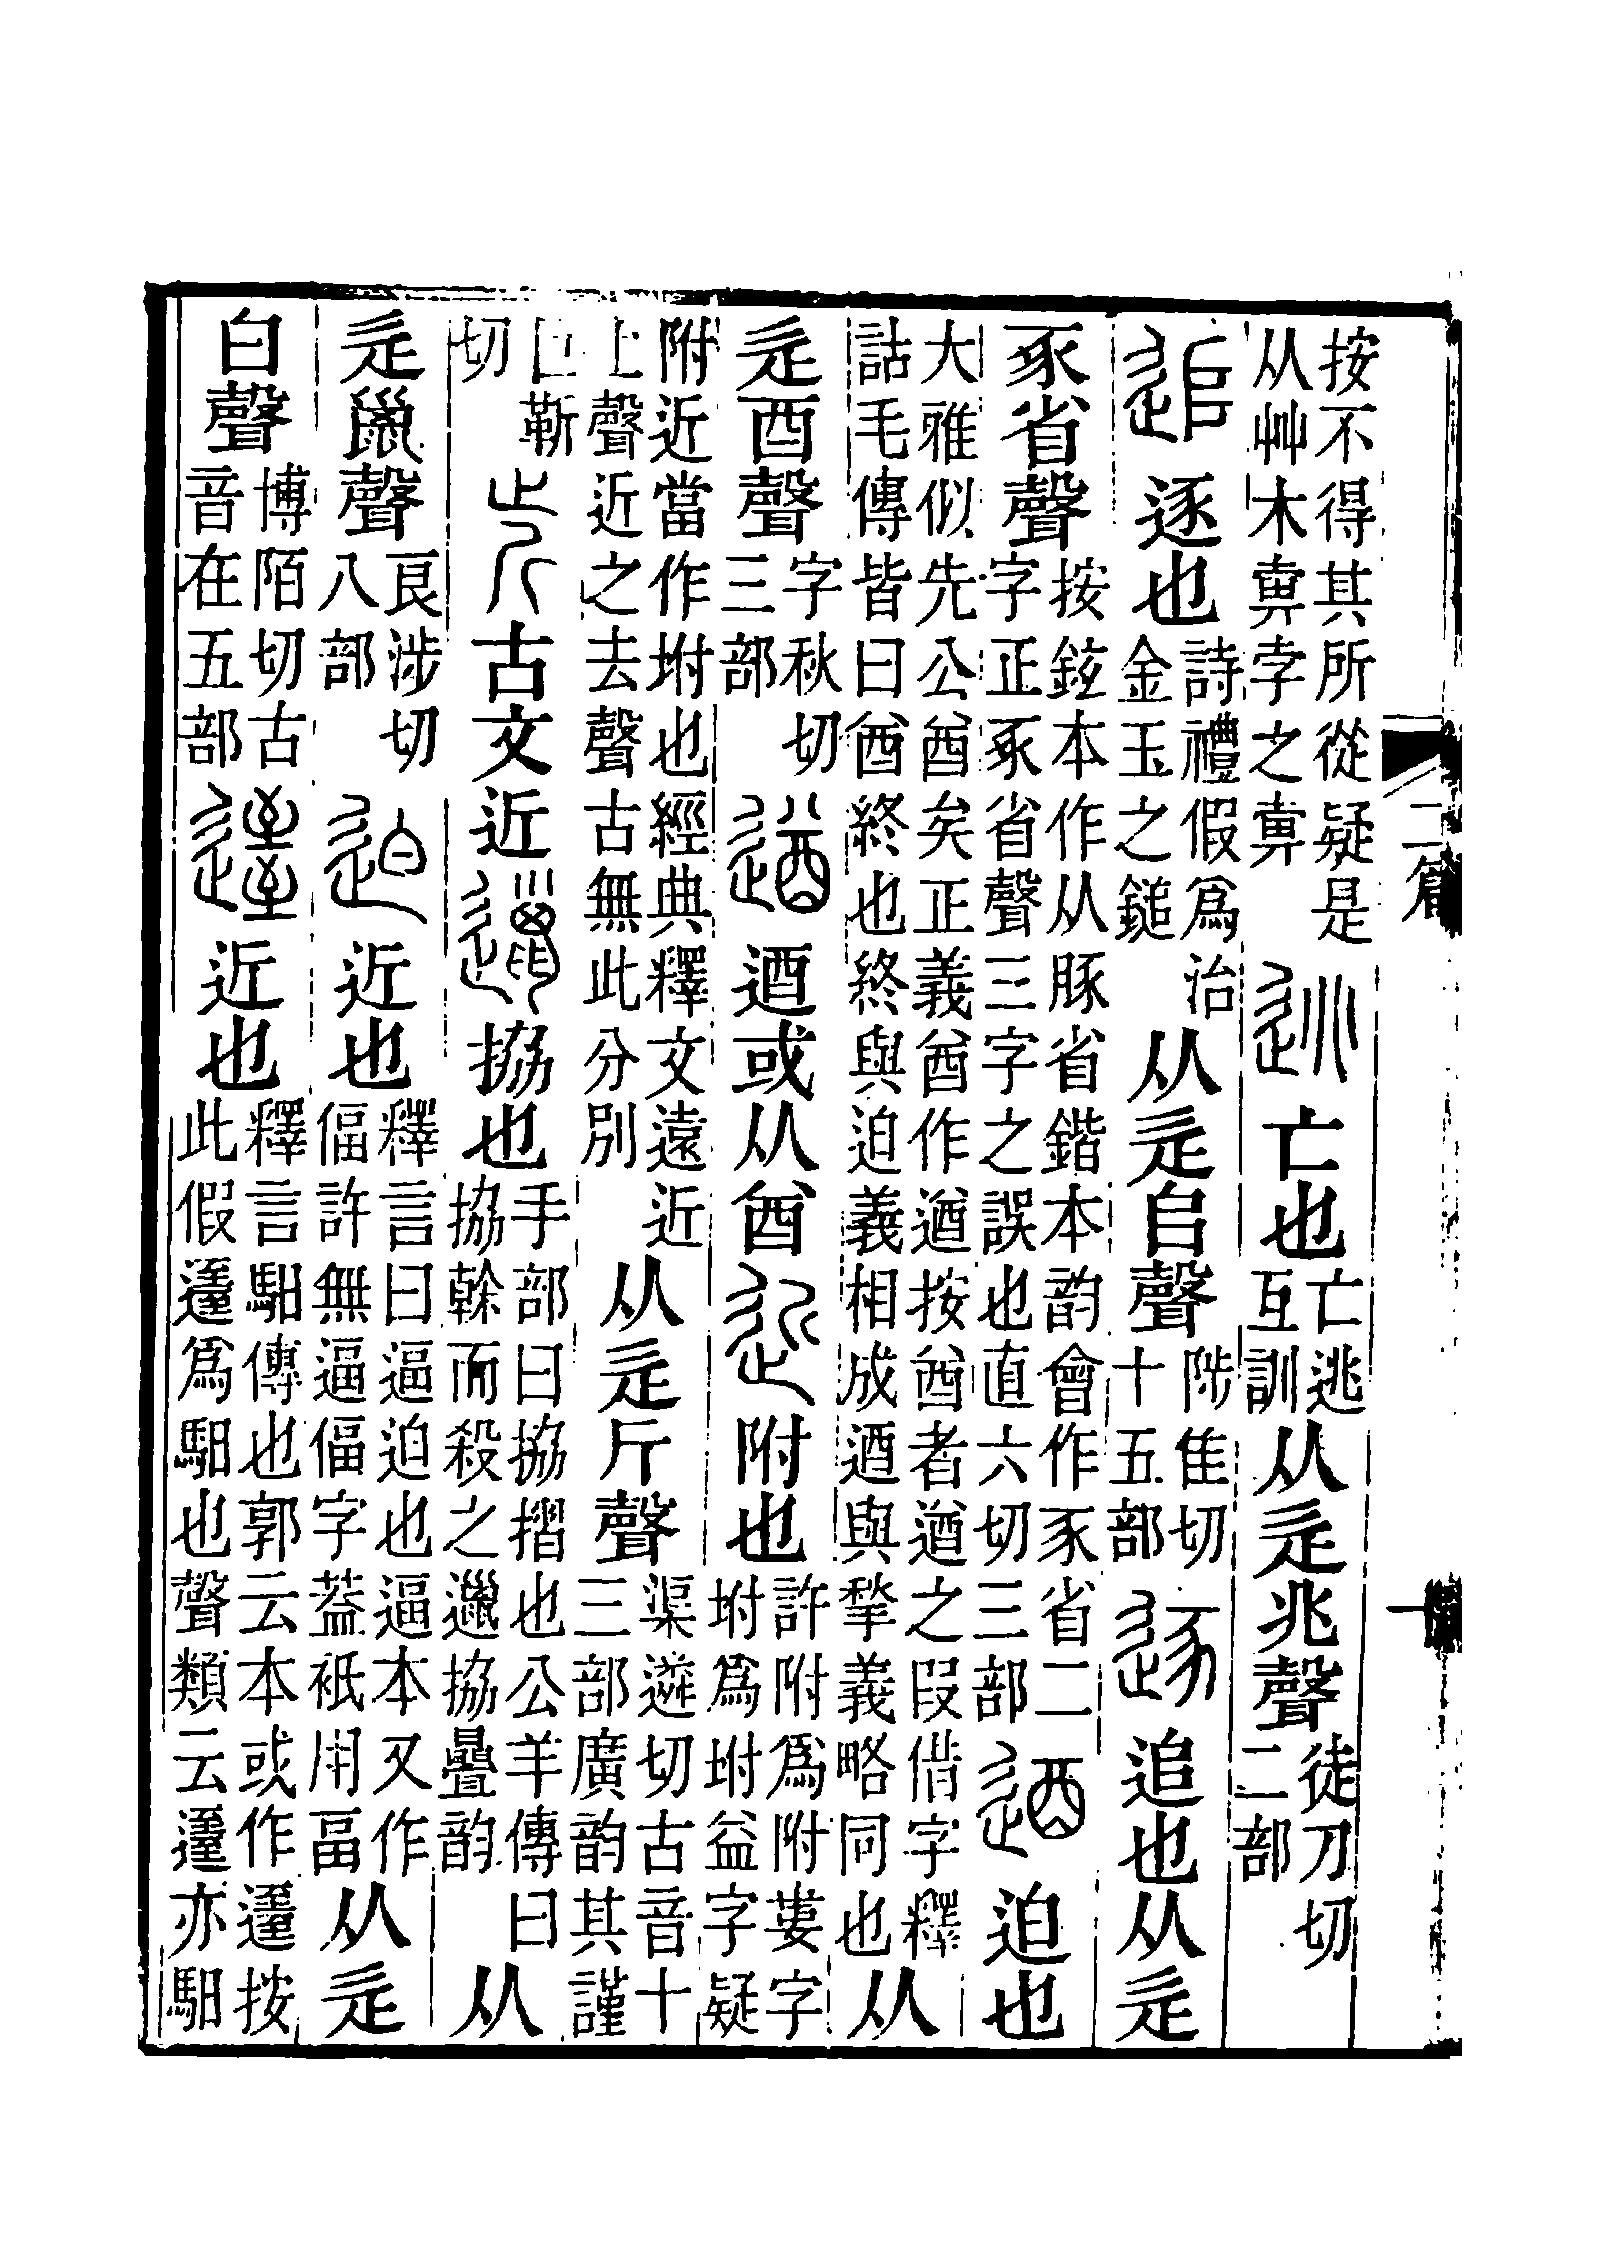 按不得其所從疑是从艸木𠦪孛之𠦪逃亡也亡逃互訓从辵兆聲徒刀切二部
追逐也詩禮假爲治金玉之鎚从辵𠂤聲陟隹切十五部逐追也从辵
豖省聲按鉉本作从豚省鍇本韵會作豕省二字正豖省聲三字之誤也直六切三部逎迫也
大雅似先公酋矣正義酋作遒按酋者遒之叚借字釋詁毛傳皆曰酋終也終與迫義相成逎與揫義略同也从
辵酉聲字秋切三部遒逎或从酋近附也許附爲附婁字坿爲坿益字疑
附近當作坿也經典釋文遠近上聲近之去聲古無此分別从辵斤聲渠遴切古音十三部廣韵其謹
巨靳切古文近邋拹也手部曰拹摺也公羊傳曰拹榦而殺之邋拹曡韵从
辵巤聲良涉切八部迫近也釋言曰逼迫也逼本又作偪許無逼偪字葢衹用畐从辵
白聲博陌切古音在五部𨔝近也釋言馹傳也郭云本或作𨔝按此假𨔝爲馹也聲類云𨔝亦馹
二篇